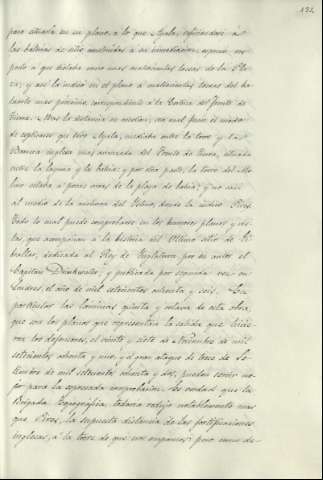 132.
para situarla en su plano, a lo que Ayala, refiriendose á
las baterias de sitio construidas á su inmediacion, expuso respecto
á que distaba unas mil setecientas toesas de la Plaza;
y asi la indicó en el plano á mil setecientas toesas del baluarte
mas próximo, correspondiente á la Cortina del frente de
tierra. Mas la distancia en cuestion, era mal
de explicarse que tuvo Ayala, mediaba entre la torre y la
Barrera inglesa mas avanzada del Frente de tierra, situada
entre la laguna y la bahia; y por otra parte, la torre del Molino
estaba á pocas varas de la playa de bahia; y no casi
al medio de la anchura del Istmo, donde la indicó Pros.
Todo lo cual puede comprobarse en los hermosos planos y vistas,
que acompañan á la historia del Ultimo sitio de Gibraltar,
dedicada al Rey de Inglaterra por su autor el
Capitan Drinkwater, y publicada por segunda vez en
Londres, el año de mil setecientos ochenta y seis. En
particular las láminas quinta y octava de esta obra,
que son los planos que representan la salida que hicieron
los defensores, el veinte y siete de Noviembre de mil
setecientos ochenta y uno, y el gran ataque de trece de Setiembre
de mil setecientos ochenta y dos, pueden servir mejor
para la expresada comprobacion. Es verdad que la
Brigada Topográfica todavia redujo notablemente mas
que Pros, la supuesta distancia de las fortificaciones
inglesas, á la torre de que nos ocupamos; pero como de-